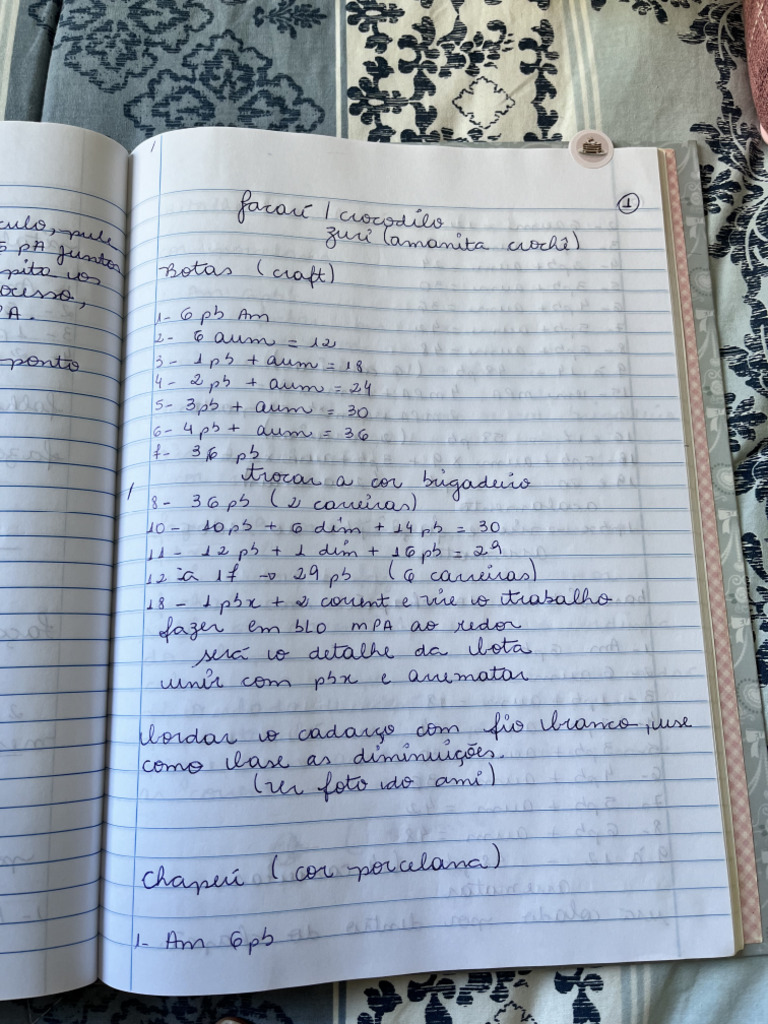 culo, pule
pA juntos
pita os
ocesso,
PA.
ponto
1
Jacaré / crocodilo
Zuri (amanita crochê)
Botas (craft)
1- 6 pb Am
2- 6 aum = 12
3- 1pb + aum = 18
4- 2pb + aum = 24
5- 3pb + aum = 30
6- 4pb + aum = 36
7- 36 pb
trocar a cor brigadeiro
8- 36 pb (2 carreiras)
10- 10pb + 6 dim + 14pb = 30
11- 12pb + 1 dim + 16pb = 29
12 à 17 → 29 pb (6 carreiras)
18- 1pbx + 2 corrent e vire o trabalho
fazer em BLO MPA ao redor
será o detalhe da bota
unir com pbx e arrematar
bordar o cadarço com fio branco, use
como base as diminuições.
(ver foto do ami)
Chapéu (cor porcelana)
1- Am 6pb